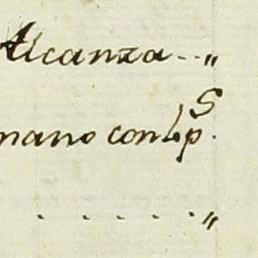 Alcanza...„
mano con
......„